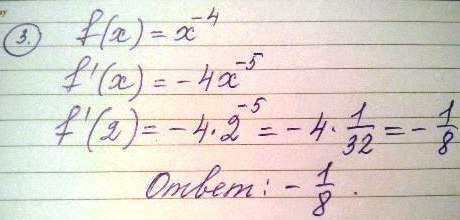 3. f(x) = x⁻⁴
f'(x) = -4x⁻⁵
f'(2) = -4·2⁻⁵ = -4·1/32 = -1/8
Ответ: -1/8.